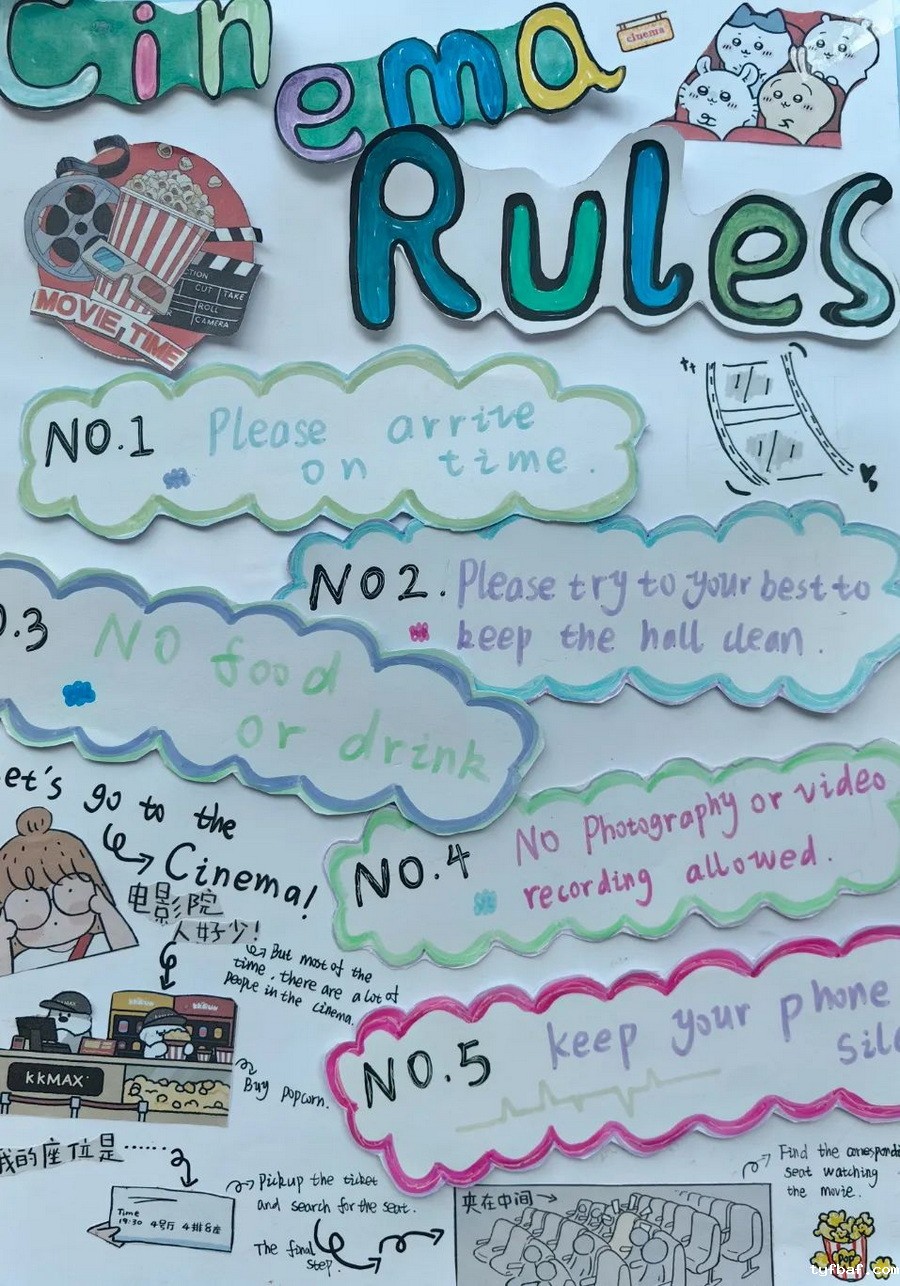 Cinema
cinema
Rules
ACTION
CUT TAKE
ROLL
CAMERA
MOVIE TIME
NO.1 Please arrive
on time.
NO2. Please try to your best to
keep the hall clean.
.3 NO food
or drink
et's go to the
Cinema!
电影院
人好少!
But most of the
time, there are a lot of
people in the cinema.
NO.4 NO Photography or video
recording allowed.
NO.5 keep your phone
KKMAX
Buy popcorn.
我的座位是······
Time
19:30 4号厅 4排8座
Pickup the ticket
and search for the seat.
The final
step.
夹在中间→
Find the
seat watching
the movie.
Pop
tyfbaf.com